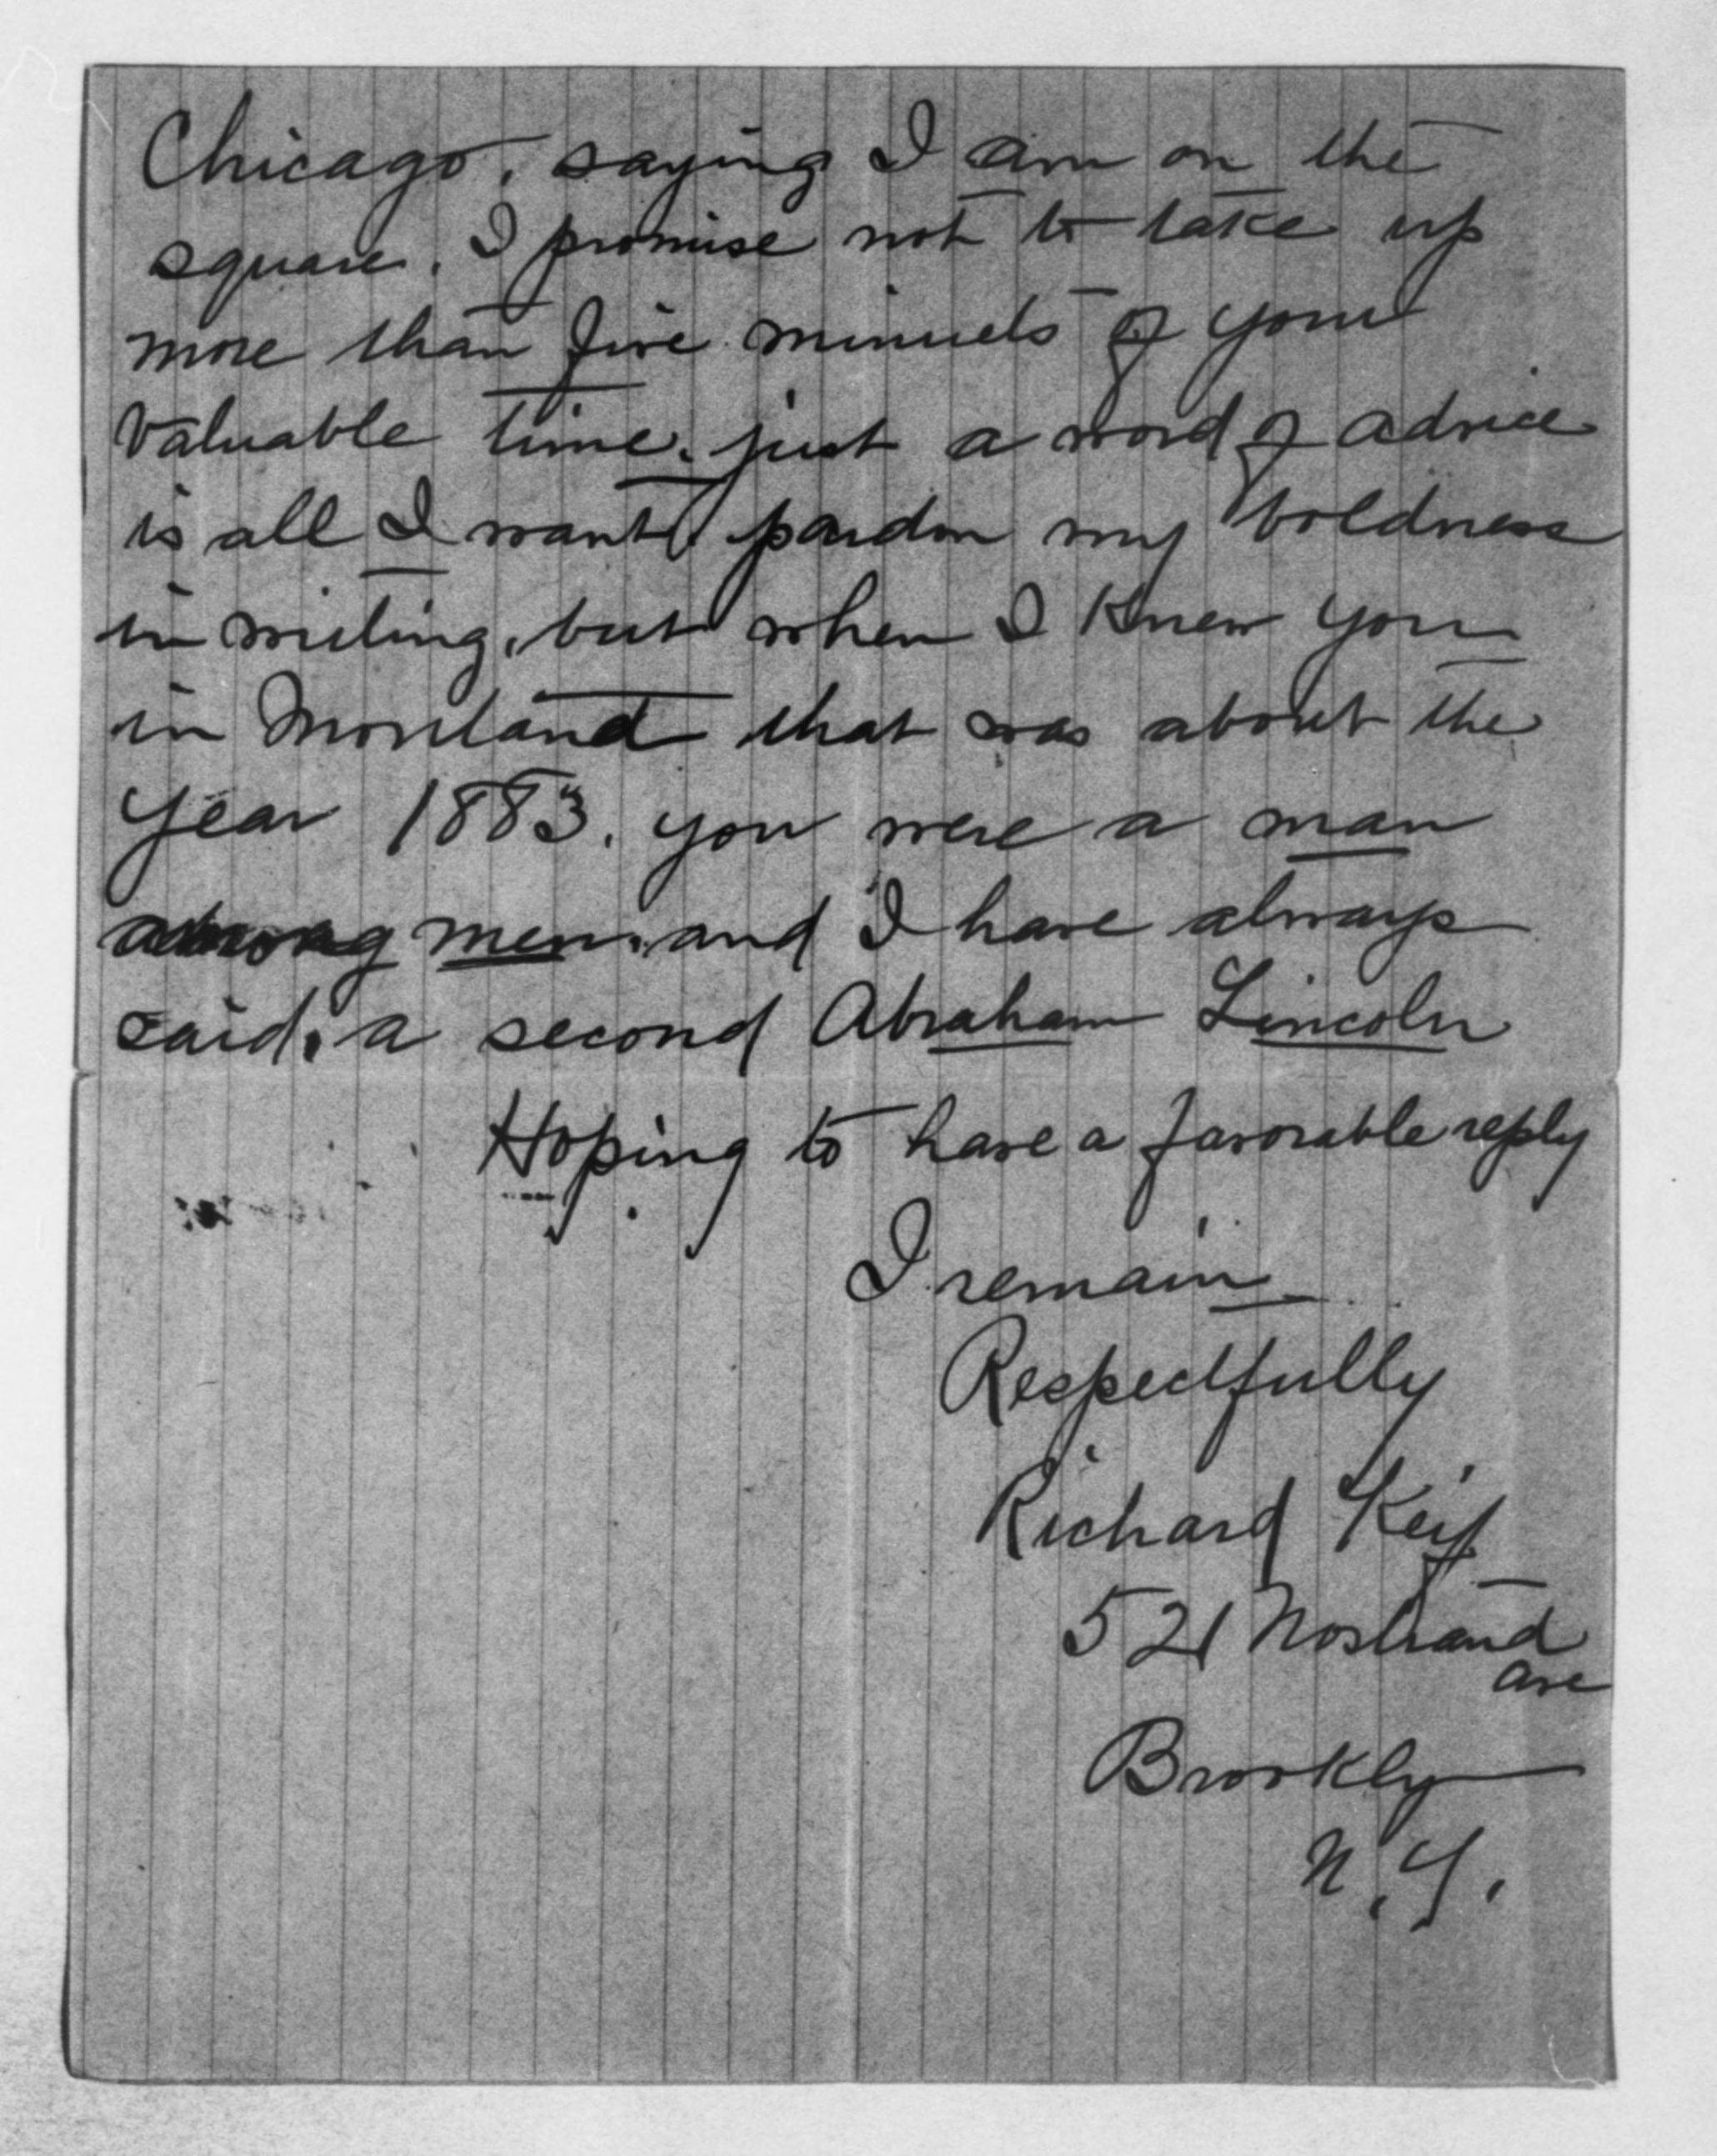 Chicago, saying I am on the
square. I promise not to take up
more than five minuets of your
valuable time. just a word of advice
is all I want. pardon my boldness
in writing, but when I knew you
in Montana that was about the
year 1883. you were a man
among men. and I have always
said, a second Abraham Lincoln
Hoping to have a favorable reply
I remain
Respectfully
Richard
521 Nostrand
ave
Brooklyn
N.Y.